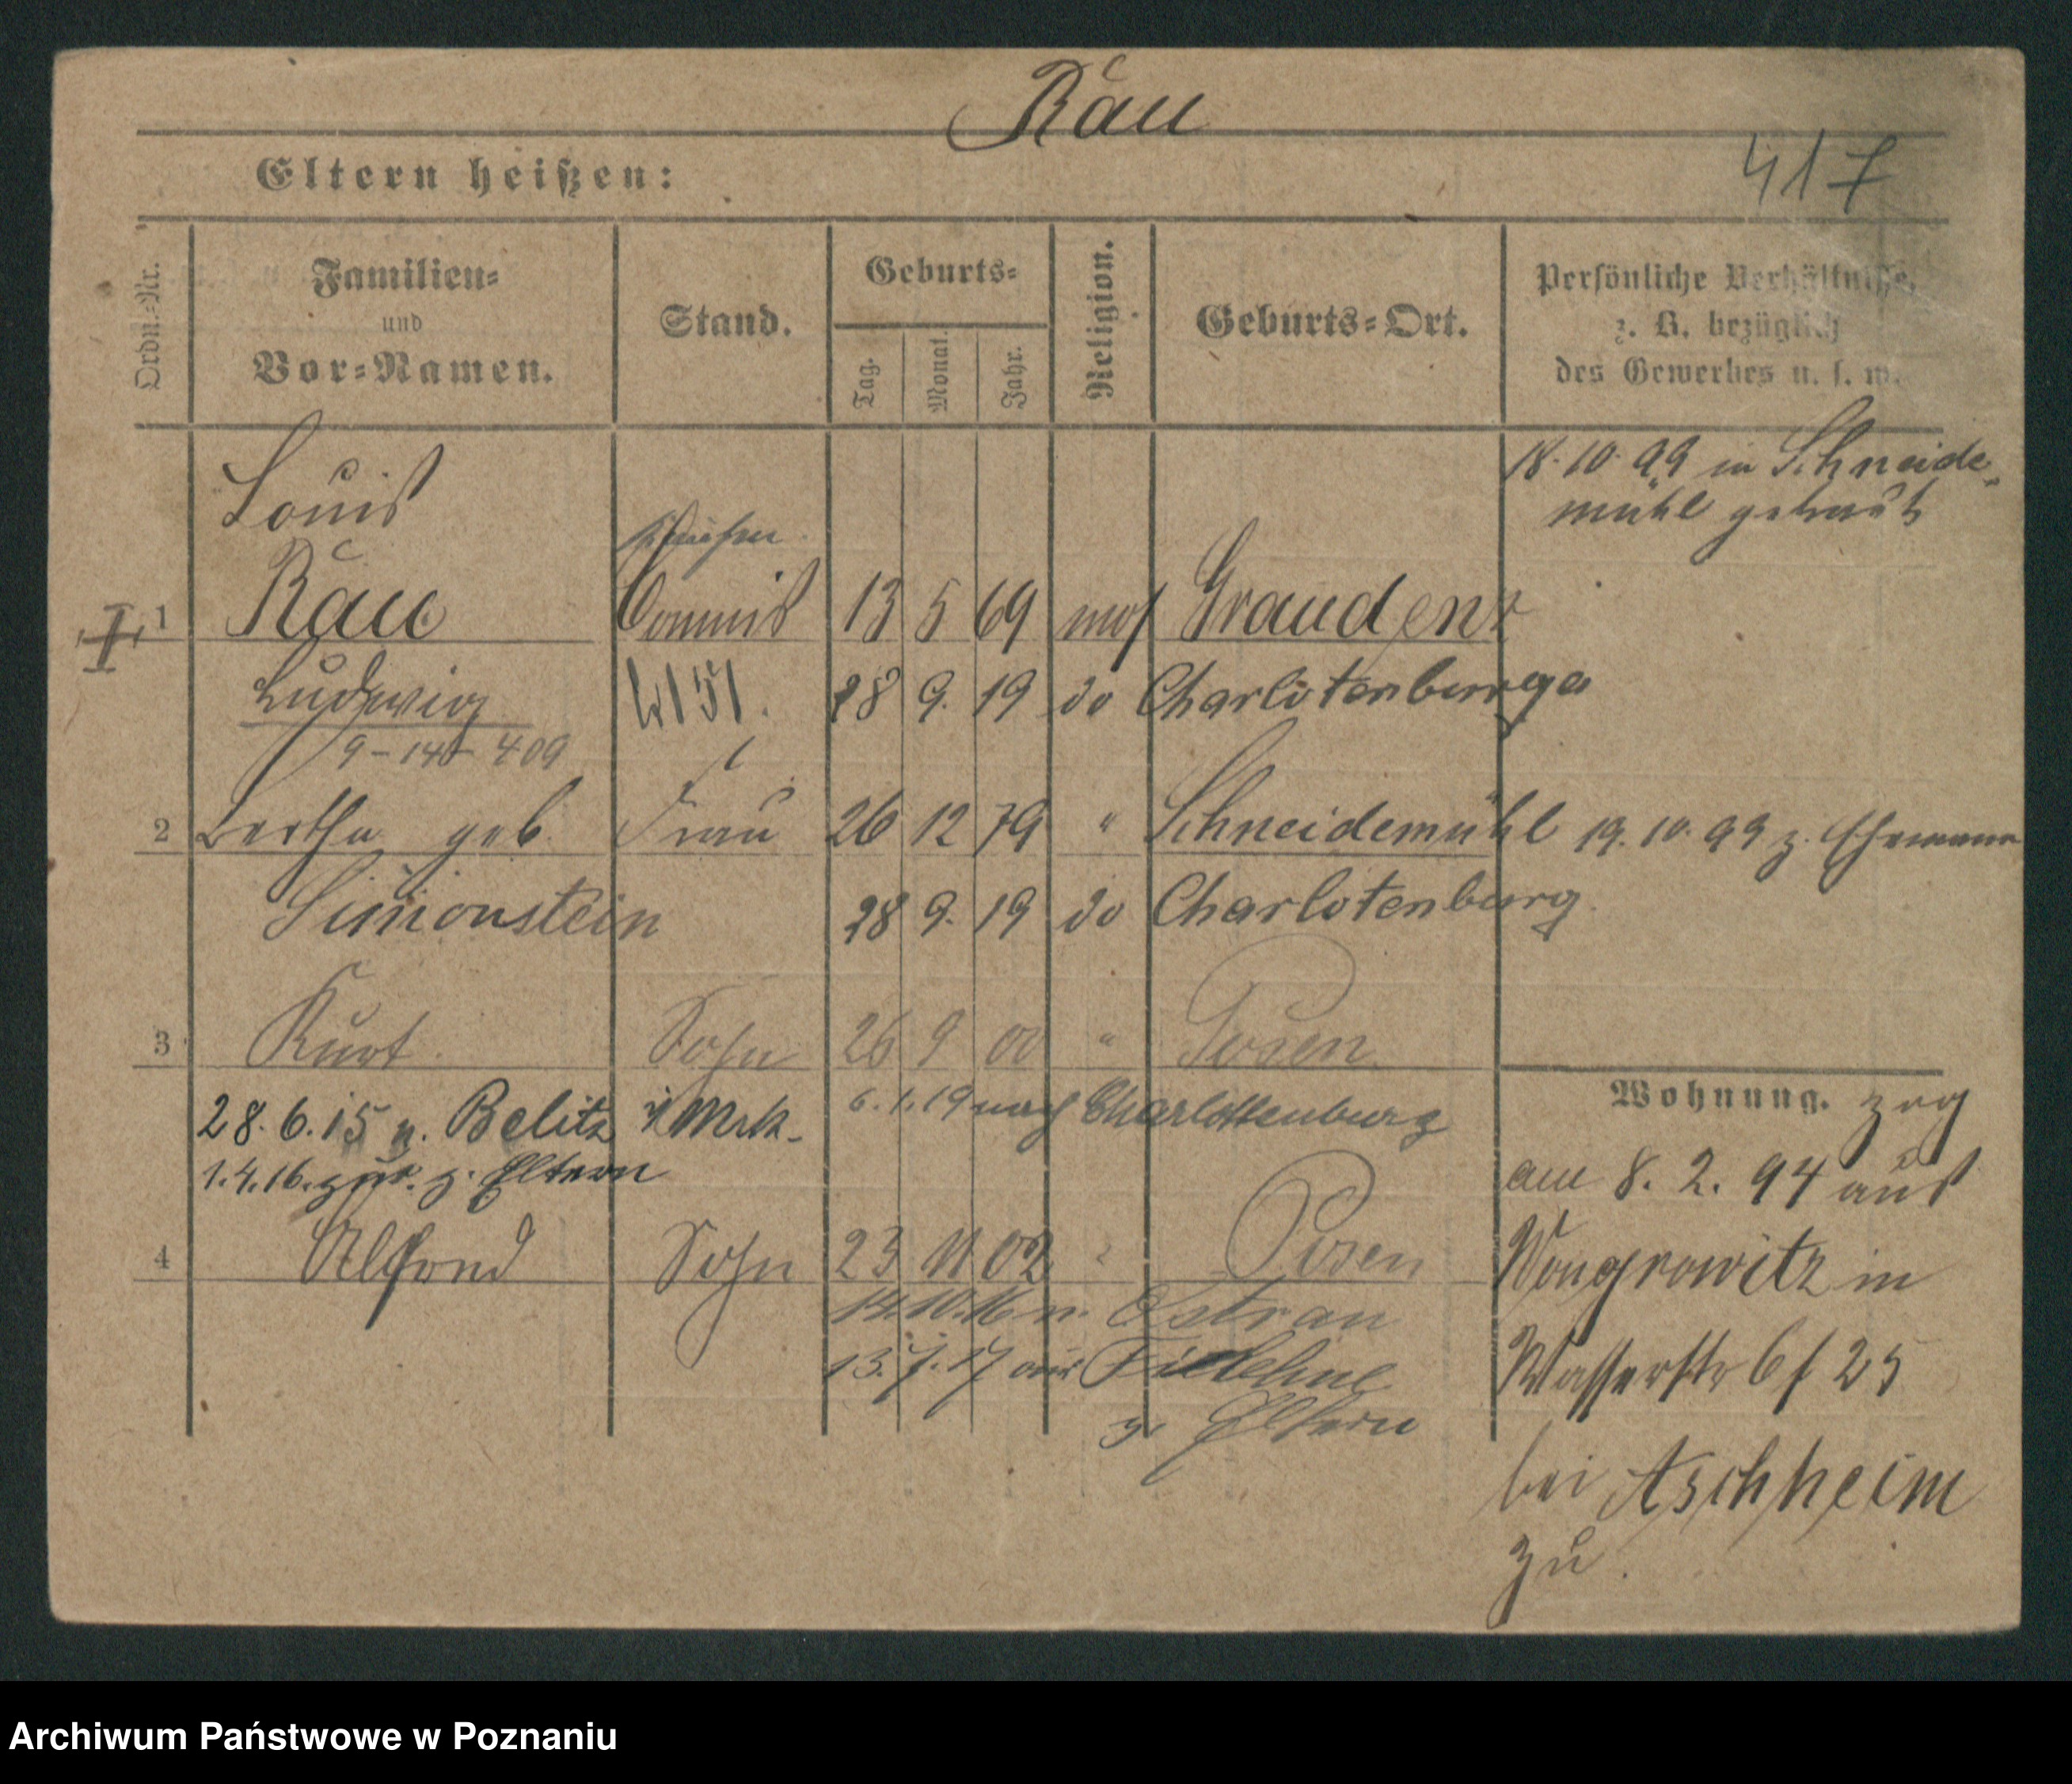 Rau
417
Eltern heißen:
Ordn.-Nr.
Familien=
und
Vor=Namen.
Stand.
Geburts=
Tag.
Monat.
Jahr.
Religion.
Geburts=Ort.
Persönliche Verhältnisse,
z. B. bezüglich
des Gewerbes u. s. w.
18. 10. 99 in Schneide-
mühl getraut
Louis
I 1 Rau Commis 13 5 69 mos Graudenz
Ludwig 28 9. 19 do Charlotenburg
9-14 409
2 Bertha geb. Frau 26 12 79 " Schneidemühl 19. 10. 99 z. Ehemann
Simonstein 28 9. 19 do Charlotenburg
3 Kurt Sohn 26 9 00 " Posen
Wohnung. zog
28. 6. 15 n. Belitz i/Mrk. 6. 1. 19 nach Charlottenburg
1. 4. 16. zur. z. Eltern
am 8. 2. 94 aus
4 Alfred Sohn 23 11 02 " Posen
Wongrowitz in
14. 10. 16 n. Ostrau
13. 7. 17 aus Filehne
Wasserstr 6 / 25
z. Eltern
bei Aschheim
zu.
Archiwum Państwowe w Poznaniu